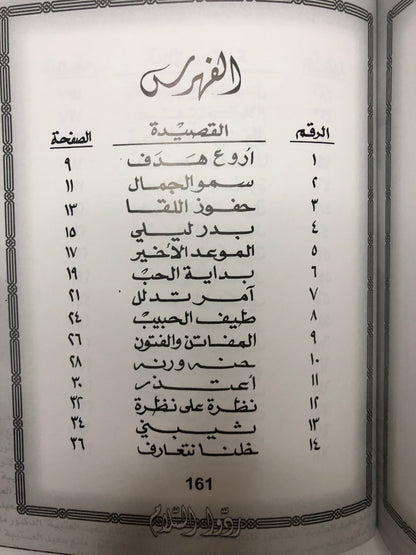 الفهرس
الرقم القصيدة الصفحة
١ أروع هدف ٩
٢ سمو الجمال ١١
٣ حفوز اللقا ١٣
٤ بدر ليلي ١٥
٥ الموعد الأخير ١٧
٦ بداية الحب ١٩
٧ آمر تدلل ٢١
٨ طيف الحبيب ٢٤
٩ المفاتن والفتون ٢٦
١٠ حنه ورنه ٢٨
١١ أعتذر ٣٠
١٢ نظرة على نظرة ٣٢
١٣ شيبني ٣٤
١٤ خلنا نتعارف ٣٦
161